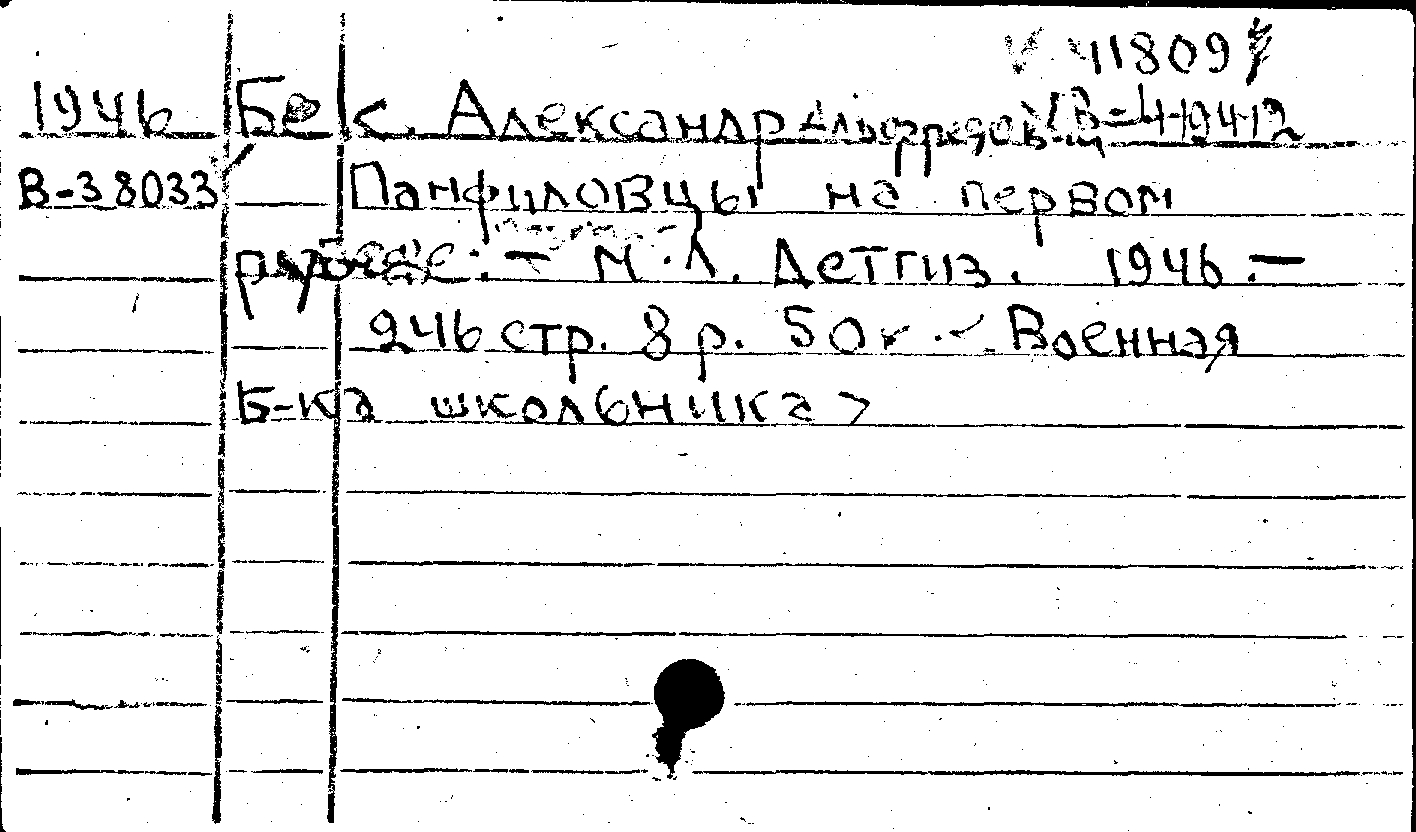 V 41809
1946 Бек. Александр Альфредович В-41942
В-38033 Панфиловцы на первом
рубеже. — М.Л. Детгиз. 1946. —
246 стр. 8 р. 50 к. Военная
Б-ка школьника >